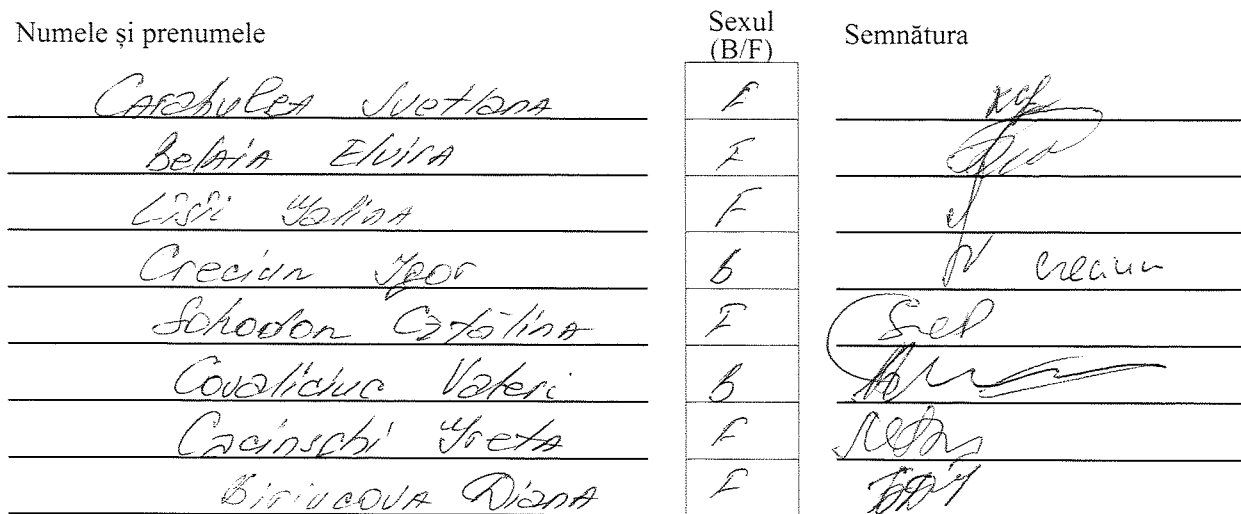 Numele și prenumele Sexul (B/F) Semnătura
Carabulea Svetlana F
Belaia Elvira F
Lisii Galina F
Creciun Igor B Creciun
Sohodon Cătălina F
Covaliciuc Valeri B
Cacinschi Greta F
Biriucova Diana F